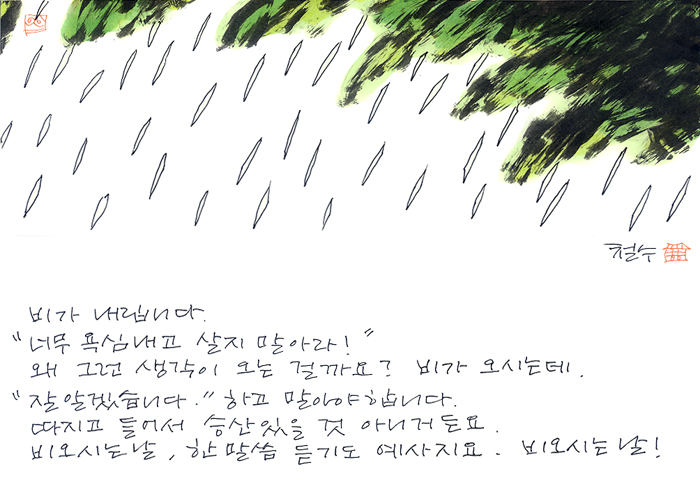 철수
비가 내립니다.
"너무 욕심내고 살지 말아라!"
왜 그런 생각이 오는 걸까요? 비가 오시는데.
"잘 알겠습니다." 하고 말아야 합니다.
따지고 들어서 승산있을 것 아니거든요.
비오시는날, 한 말씀 듣기도 예사지요. 비오시는 날!